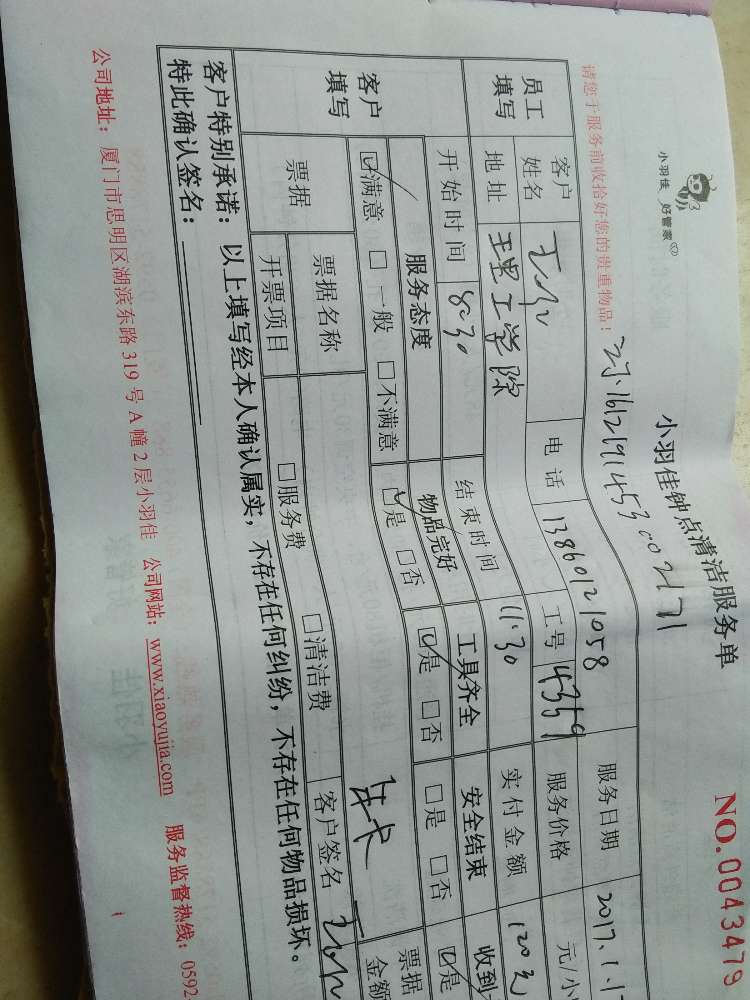 小羽佳 好管家
小羽佳钟点清洁服务单
NO.0043479
请您于服务前收拾好您的贵重物品！
员工填写 客户姓名 电话 13860121058 服务日期 2017.1.1
地址 理工学院 工号 4359 服务价格 元/小
客户填写 开始时间 8:30 结束时间 11:30 实付金额 120元
服务态度 物品完好 工具齐全 安全结束 收到
☑满意 □一般 □不满意 ☑是 □否 ☑是 □否 □是 □否 ☑是
票据 票据名称 年卡 票据金额
开票项目 □服务费 □清洁费 客户签名
客户特别承诺：以上填写经本人确认属实，不存在任何纠纷，不存在任何物品损坏。
特此确认签名：
公司地址：厦门市思明区湖滨东路 319 号 A 幢 2 层小羽佳 公司网站：www.xiaoyujia.com 服务监督热线：0592